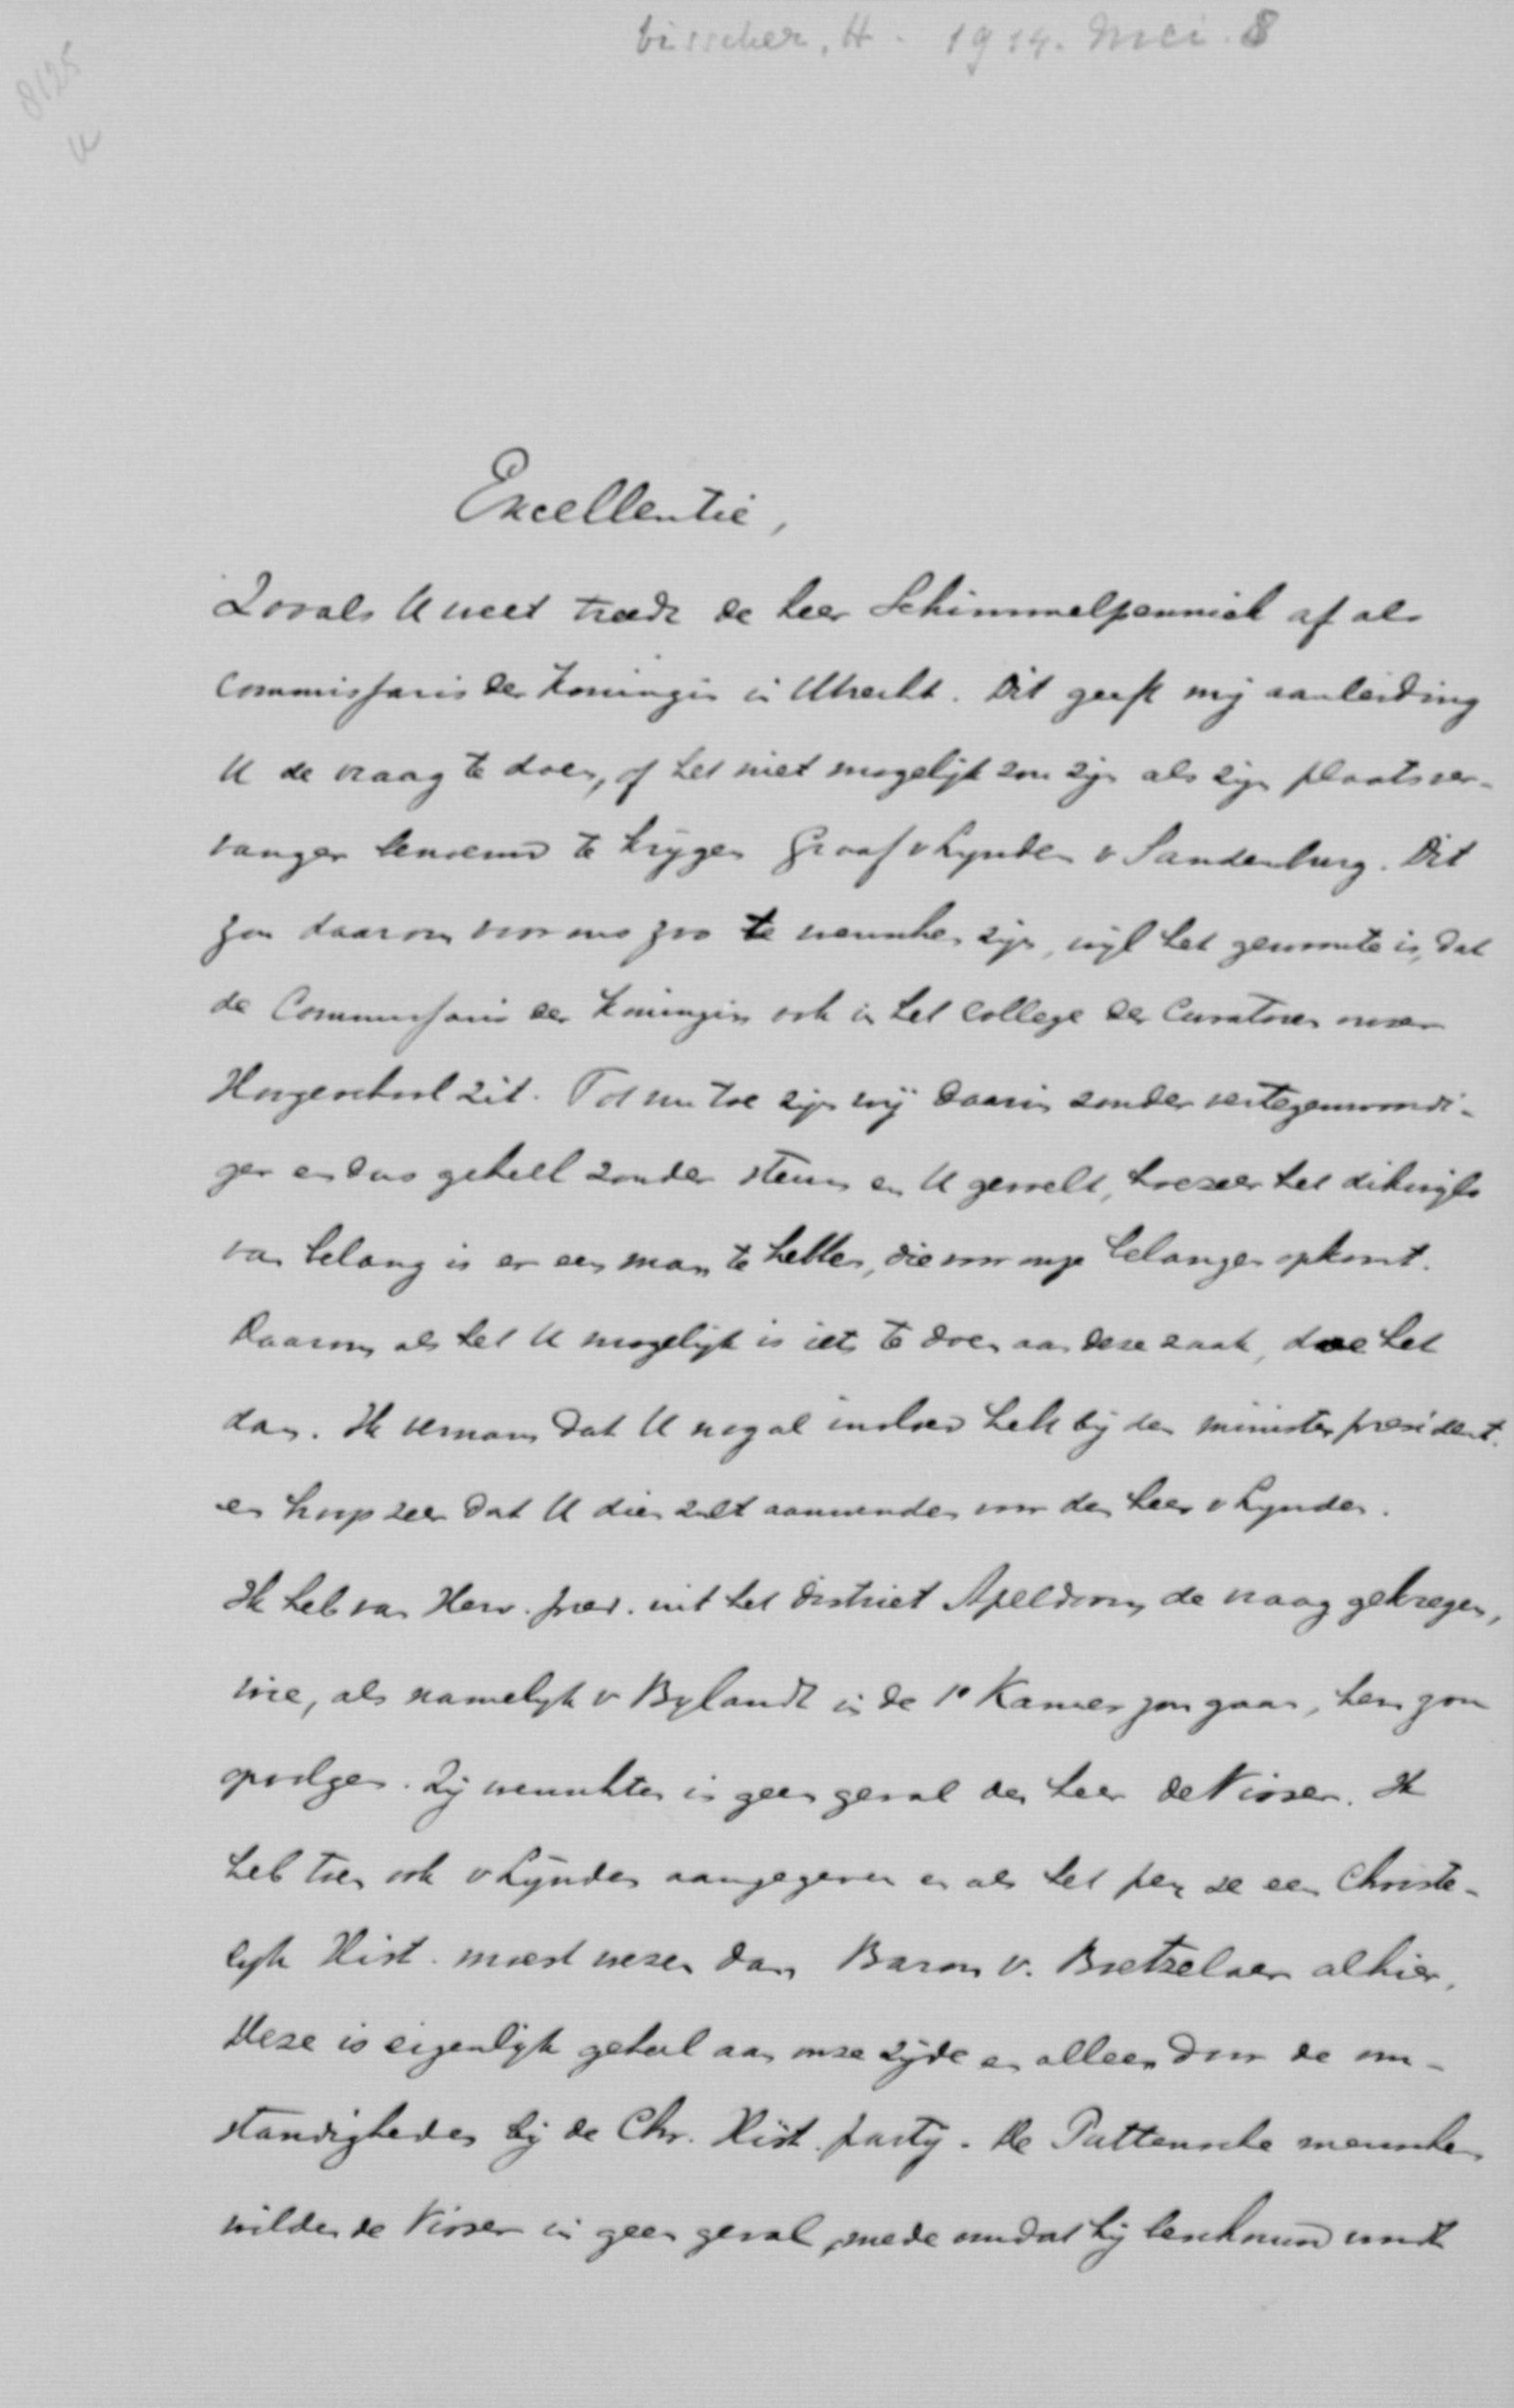 Visscher, H. 1914. Mei. 8
8125
Excellentie,
Zooals U weet treedt de heer Schimmelpenninck af als
Commissaris der Koningin in Utrecht. Dit geeft mij aanleiding
U de vraag te doen, of het niet mogelijk zou zijn als zijn plaatsver-
vanger benoemd te krijgen Graaf v Lynden v Sandenburg. Dit
zou daarom voor ons zoo te wenschen zijn, wijl het gewoonte is, dat
de Commissaris der Koningin ook in het College der Curatoren onzer
Hoogeschool zit. Tot nu toe zijn wij daarin zonder vertegenwoordi-
ger en dus geheel zonder steun en U gevoelt, hoezeer het dikwijls
van belang is er een man te hebben, die voor onze belangen opkomt.
Daarom als het U mogelijk is iets te doen aan deze zaak, doe het
dan. Ik vernam dat U nogal invloed hebt bij den minister president
en hoop zeer dat U dien zult aanwenden voor den heer v Lynden.
Ik heb van Herv. pred. uit het district Apeldoorn de vraag gekregen,
wie, als namelijk v Bylandt in de 1e Kamer zou gaan, hem zou
opvolgen. Zij wenschten in geen geval den heer de Visser. Ik
heb toen ook v Lynden aangegeven en als het per se een Christe-
lijk Hist. moest wezen dan Baron v. Boetzelaer alhier.
Deze is eigenlijk geheel aan onze zijde en alleen door de om-
standigheden bij de Chr. Hist. partij. De Puttensche menschen
wilden de Visser in geen geval, mede omdat hij beschouwd wordt